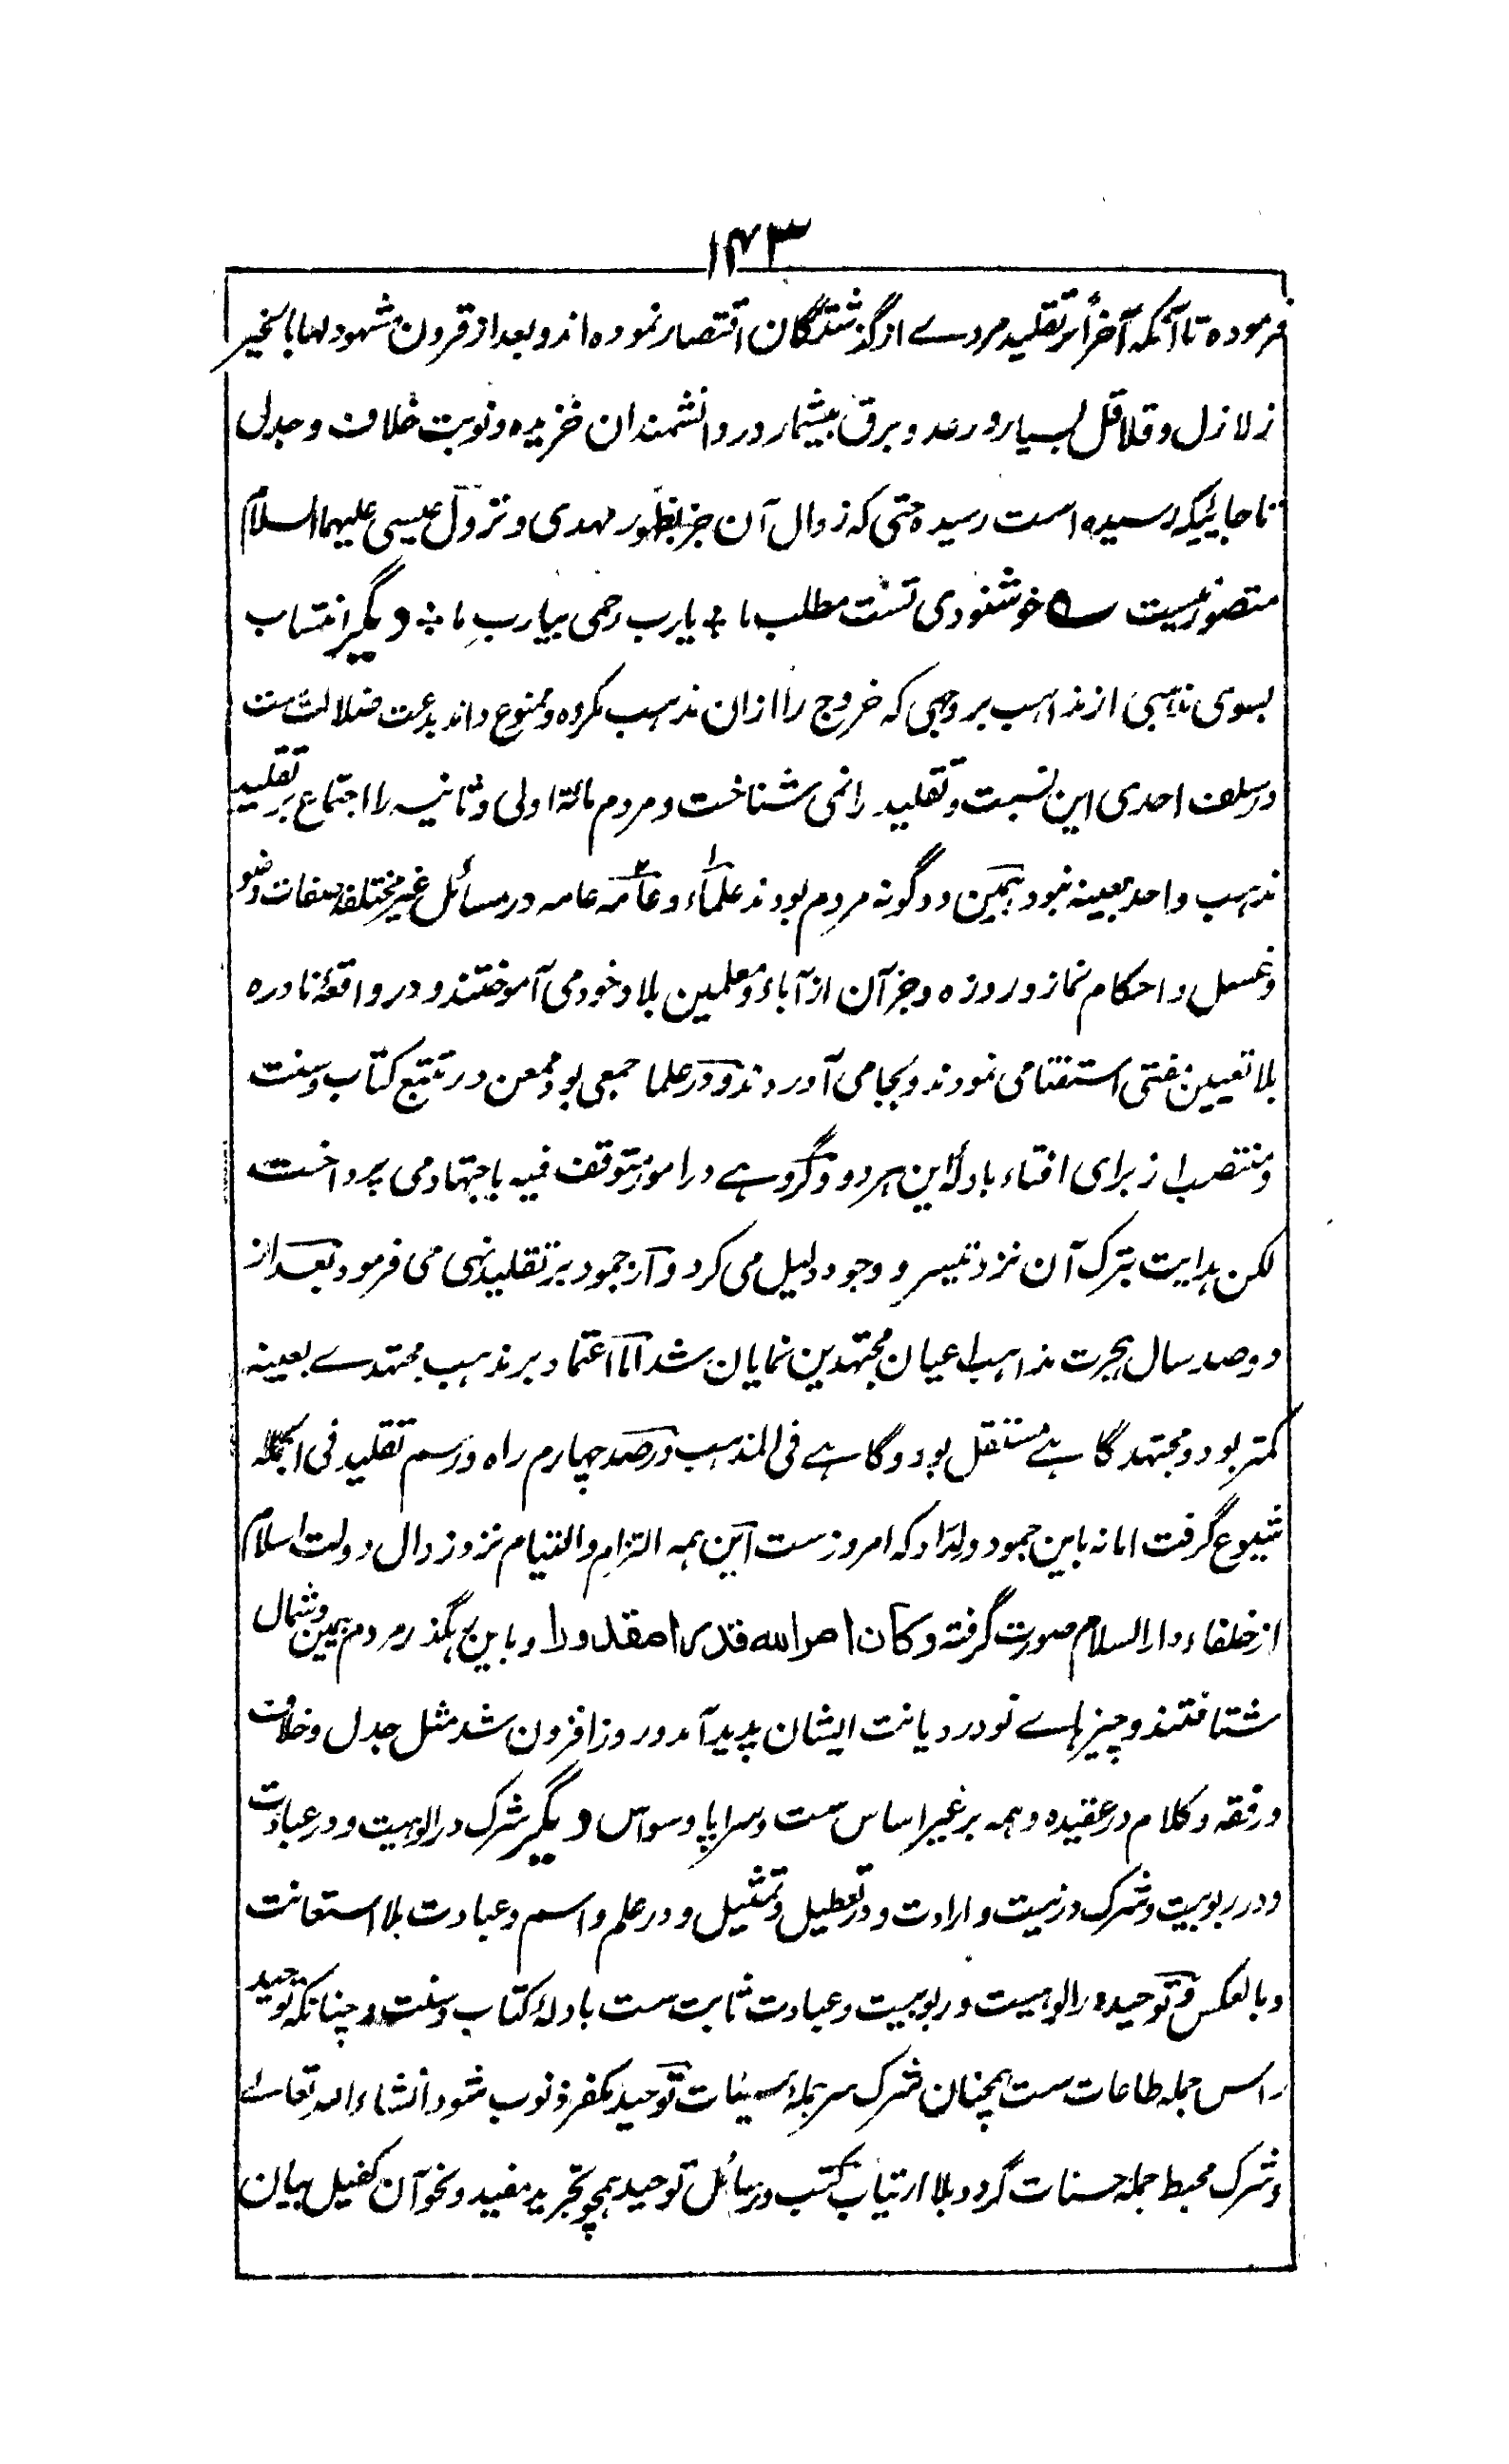 ۱۴۳
فرموده تا آنکه آخراً بر تقلید مردے از گذشتگان اقتصار نموده اند و بعد از قرون مشهود لها بالخیر
زلازل و قلاقل بسیار و رعد و برق بیشمار در دانشمندان خزیده و نوبت خلاف و جدل
تا جائیکه رسیده است رسیده حتی که زوال آن جز بظهور مهدی و نزول عیسی علیهما السلام
متصور نیست ؎ خوشنودی تست مطلب ما ٭ یارب رحمی بیارب ما ٭ دیگر انتساب
بسوی مذهبی از مذاهب بر وجهی که خروج را ازان مذهب مکروه و ممنوع داند بدعت ضلالت ست
در سلف احدی این نسبت و تقلید را نمی شناخت و مردم مائة اولی و ثانیه را اجتماع بر تقلید
مذهب واحد بعینه نبود همین دو گونه مردم بودند علماء و عامه عامه در مسائل غیر مختلفه صفات وضو
و غسل و احکام نماز و روزه و جز آن از آباء و معلمین بلاد خود می آموختند و در واقعۀ نادره
بلا تعیین مفتی استفتا می نمودند و بجا می آوردند و در علما جمعی بود ممعن در تتبع کتاب و سنت
و منتصب از برای افتاء بادلۀ این هر دو و گروهے در امور متوقف فیه باجتهاد می پرداخت
لکن هدایت بترک آن نزد تیسر و وجود دلیل می کرد و از جمود بر تقلید نهی می فرمود بعد از
دو صد سال هجرت مذاهب اعیان مجتهدین نمایان شد اما اعتماد بر مذهب مجتهدے بعینه
کمتر بود و مجتهد گاهے مستقل بود و گاهے فی المذهب در صد چهارم راه و رسم تقلید فی الجمله
شیوع گرفت اما نه باین جمود و لداد که امروز ست این همه التزام و التیام نزد زوال دولت اسلام
از خلفاء دار السلام صورت گرفته و کان امر الله قدرا مقدورا و باین رهگذر مردم یمین و شمال
شتافتند و چیزهاے نو در دیانت ایشان پدید آمد و روز افزون شد مثل جدل و خلاف
در فقه و کلام در عقیده و همه بر غیر اساس ست و سراپا وسواس دیگر شرک در الوهیت و در عبادت
و در ربوبیت و شرک در نیت و ارادت و در تعطیل و تمثیل و در علم و اسم و عبادت بلا استعانت
و بالعکس و توحید در الوهیت و ربوبیت و عبادت ثابت ست بادلۀ کتاب و سنت و چنانکه توحید
راس جمله طاعات ست همچنان شرک سر جملۀ سیئات توحید مکفر ذنوب شود انشاء الله تعالے
و شرک محبط جمله حسنات گردد بلا ارتیاب کتب و رسائل توحید همچو تجرید مفید و نحو آن کفیل بیان